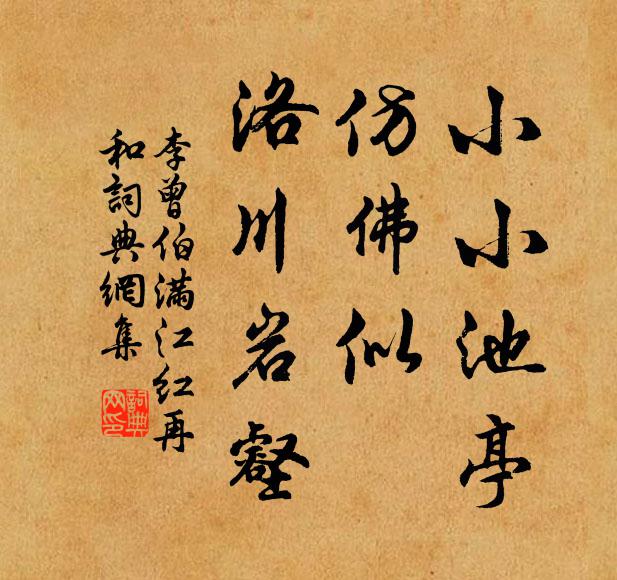 小小池亭
仿佛似
洛川岩壑
李曾伯满江红再
和詞典網集
詞典
网印